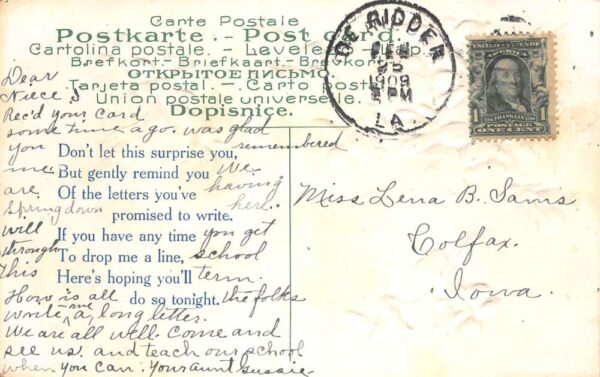 Carte Postale
Postkarte.- Post card.
Cartolina postale. - Levelezö-Lap.
Brefkort.- Briefkaart.- Brevkort.
ОТКРЫТОЕ ПИСЬМО
Tarjeta postal. - Carto postal
Union postale universelle.
Dopisnice.
DE RIDDER
FEB
25
1909
5 PM
LA.
UNITED STATES OF AMERICA
FRANKLIN
1 1
POSTAGE
ONE CENT
Dear
Niece
Rec'd your card
some time ago. was glad
you remembered
me. We
are having
spring down here.
will you get
through school
This term.
How is all the folks
write me a long letter.
We are all well. Come and
see us. and teach our school
when you can. Your aunt Gussie
Don't let this surprise you,
But gently remind you
Of the letters you've
promised to write.
If you have any time
To drop me a line,
Here's hoping you'll
do so tonight.
Miss Lena B. Sams
Colfax.
Iowa.